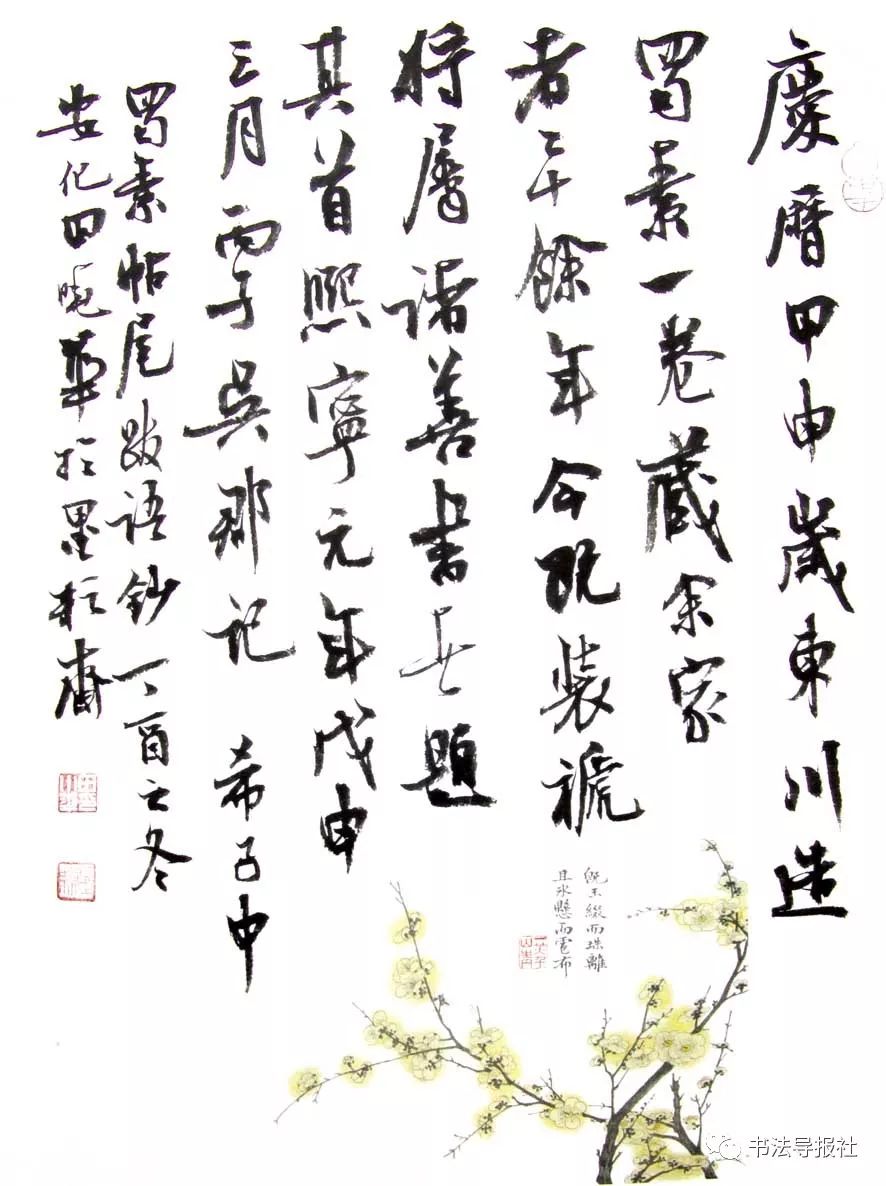 慶曆甲申歲東川造
蜀素一卷藏余家
者二十餘年今既裝褫
將屬諸善書者題
其首熙寧元年戊申
三月丙子吳郡記 希子申
蜀素帖尾跋語鈔丁酉之冬
安化田曉華於墨齋
既玉綴而珠離
且冰懸而雹布
书法导报社